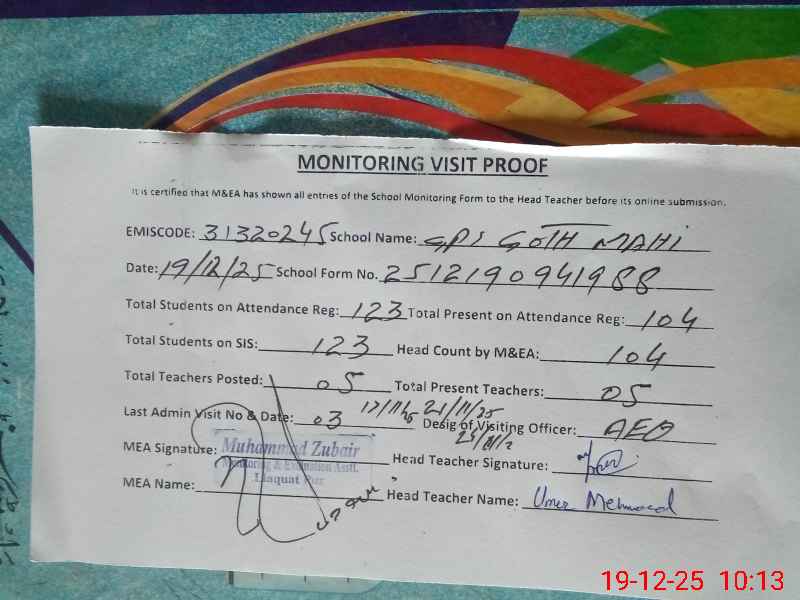 MONITORING VISIT PROOF
It is certified that M&EA has shown all entries of the School Monitoring Form to the Head Teacher before its online submission.
EMISCODE: 31320245 School Name: GPS GOTH MAHI
Date: 19/12/25 School Form No. 2512190941988
Total Students on Attendance Reg: 123 Total Present on Attendance Reg: 104
Total Students on SIS: 123 Head Count by M&EA: 104
Total Teachers Posted: 05 Total Present Teachers: 05
Last Admin Visit No & Date: 03 17/11/25 21/11/25 Desig of Visiting Officer: AEO
MEA Signature: Muhammad Zubair Head Teacher Signature:
Monitoring & Evaluation Asstt.
Liaquat Pur
MEA Name: Head Teacher Name: Umer Mehmood
19-12-25 10:13